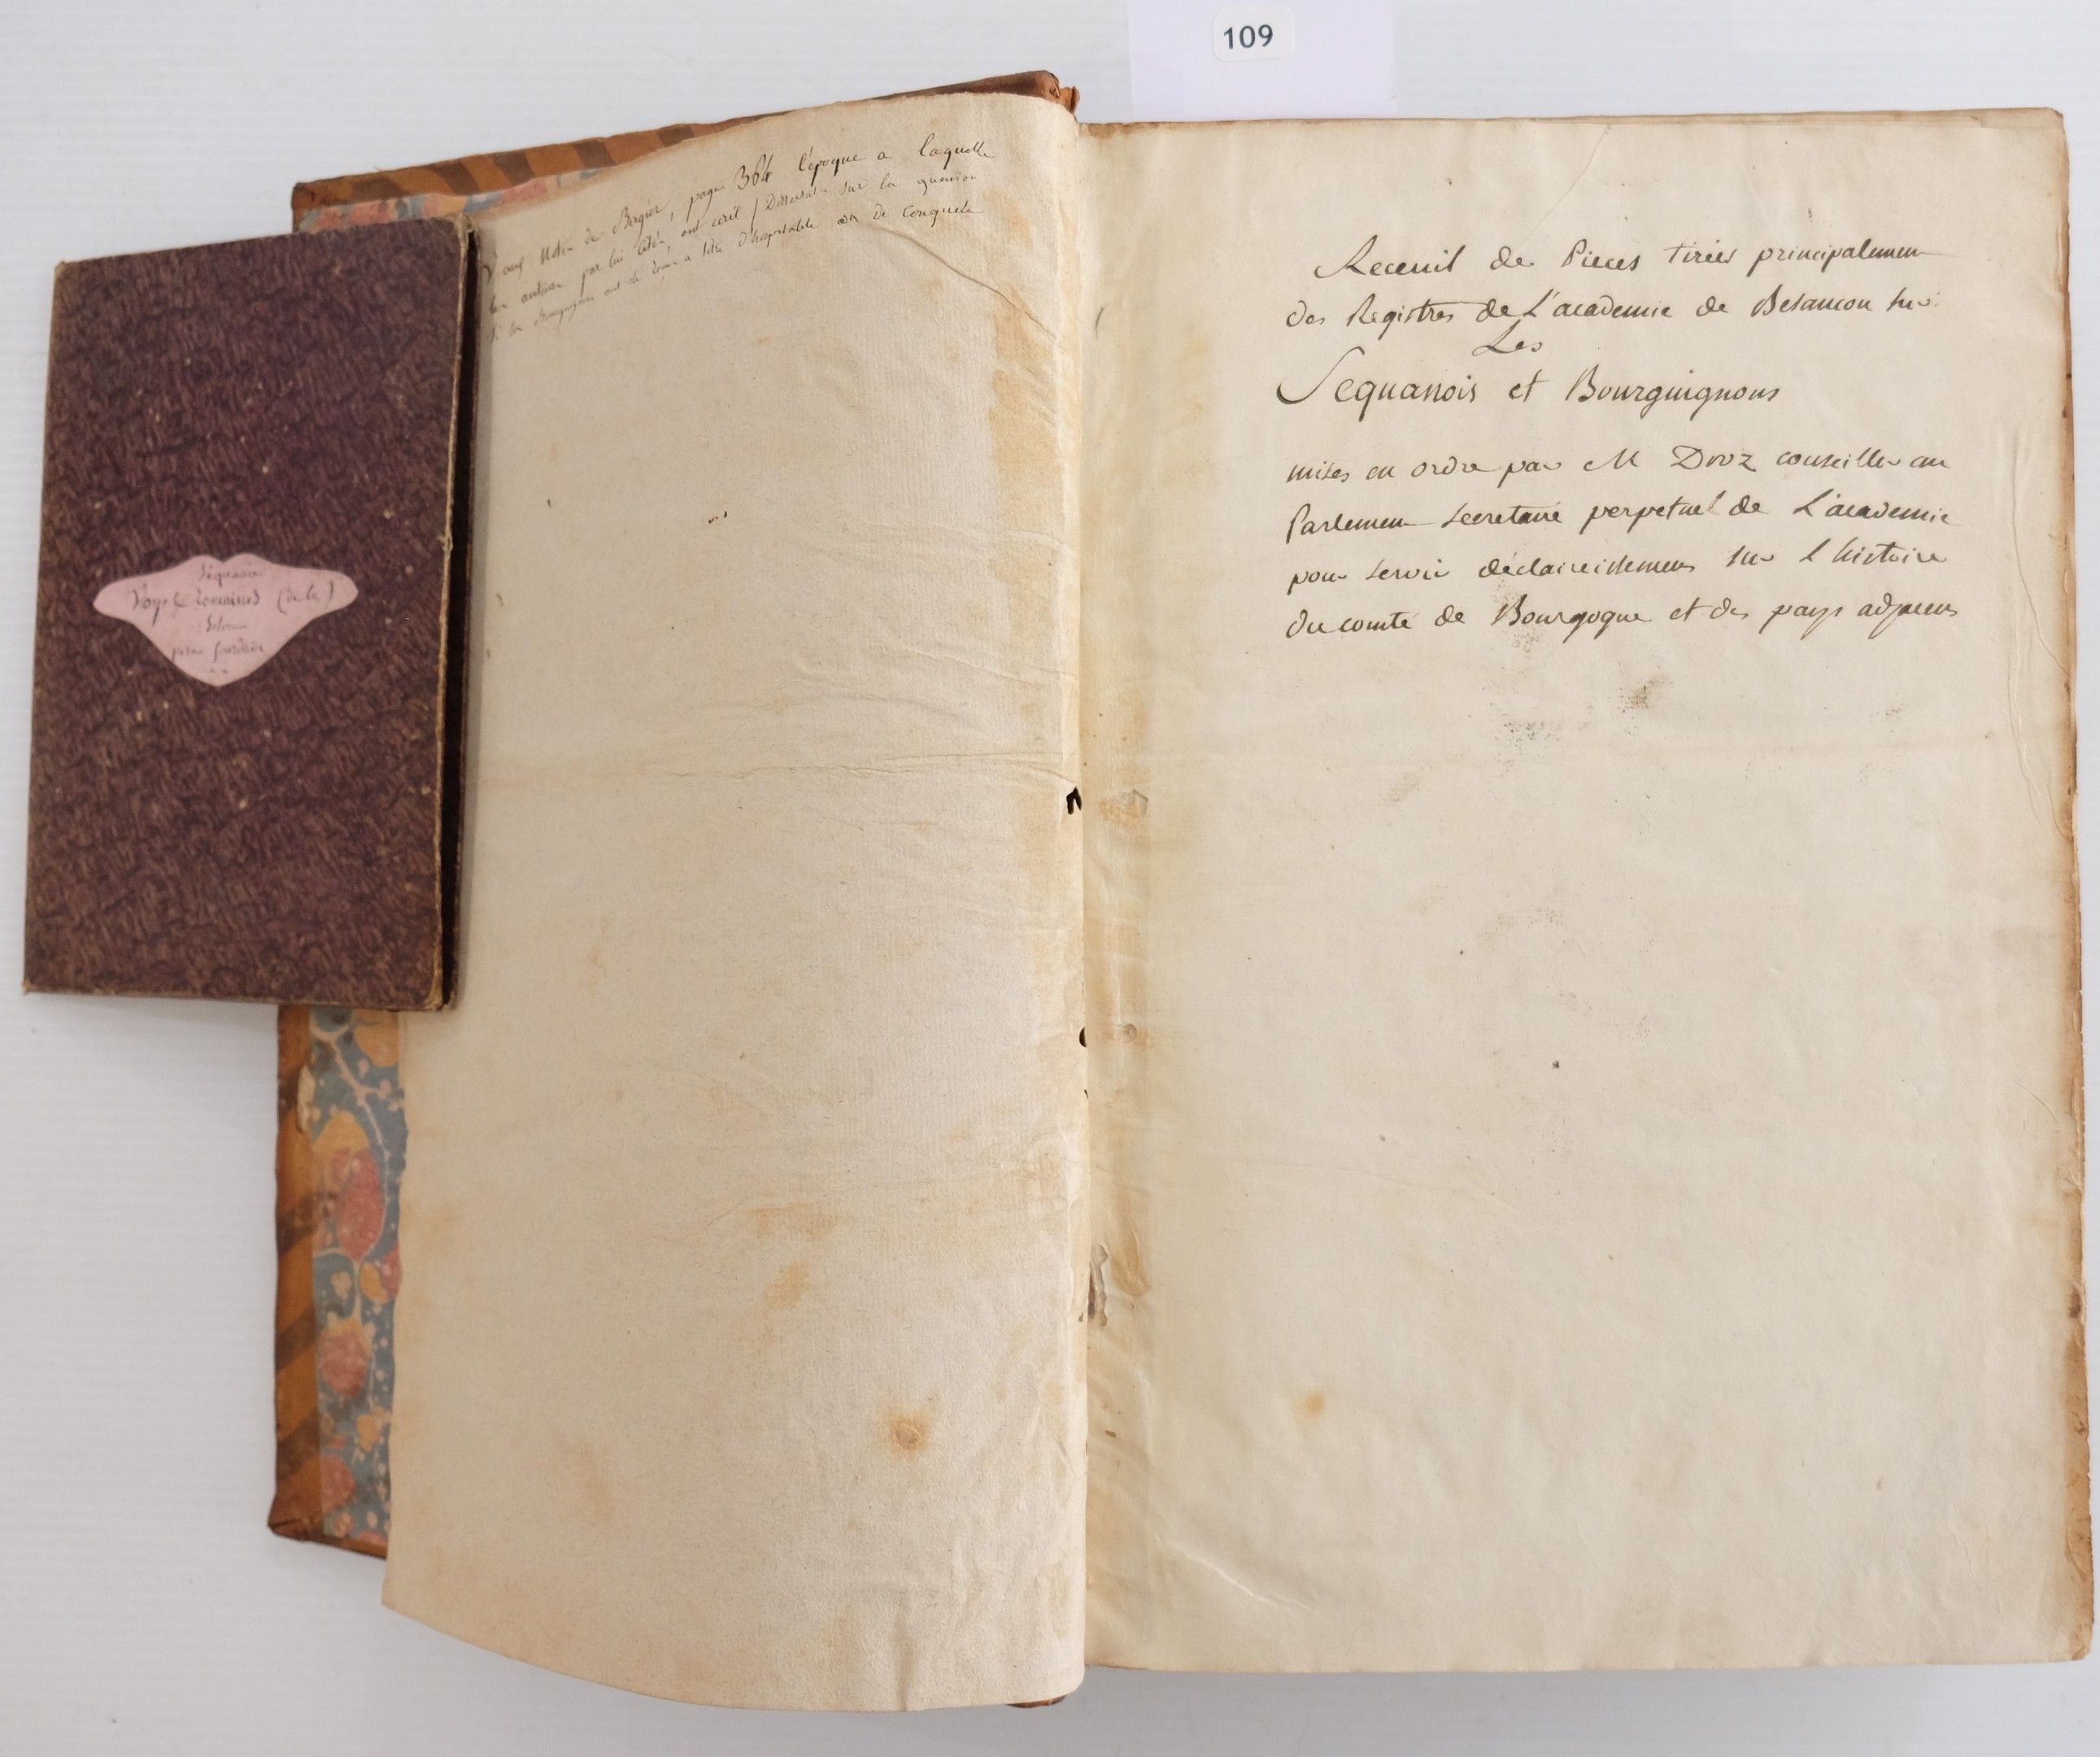 109
Séquanie
Voyes Romaines (de la)
Selon
père
notes de Bergier, page 364 l'époque a laquelle
les auteurs par lui cités, ont écrit / Dissertat. sur la question
Si les Bourguignons ont de a titre d'hospitalité ou de Conquete
Receuil de Pieces tirées principalement
des Registres de L'academie de Besancon sur
Les
Sequanois et Bourguignons
mises en ordre par M Droz conseiller au
Parlement Secretaire perpetuel de L'academie
pour servir d'éclaircissemens sur L'histoire
du comté de Bourgogne et des pays adjacens